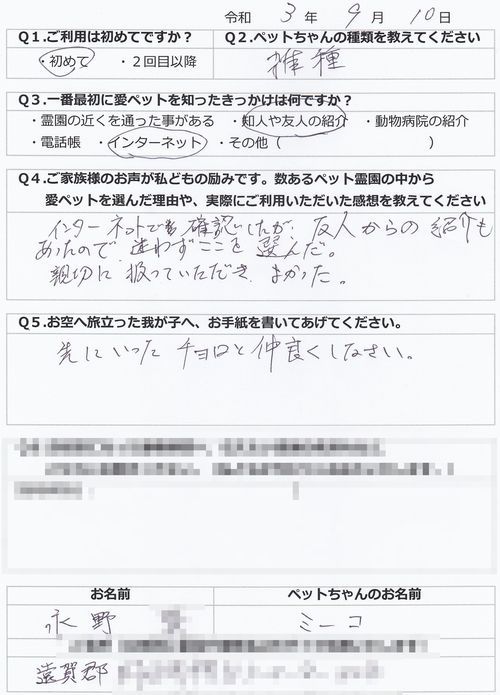 令和 3 年 9 月 10 日
Q1.ご利用は初めてですか？ Q2.ペットちゃんの種類を教えてください
・初めて ・２回目以降 雑種
Q3.一番最初に愛ペットを知ったきっかけは何ですか？
・霊園の近くを通った事がある ・知人や友人の紹介 ・動物病院の紹介
・電話帳 ・インターネット ・その他（ ）
Q4.ご家族様のお声が私どもの励みです。数あるペット霊園の中から
愛ペットを選んだ理由や、実際にご利用いただいた感想を教えてください
インターネットでも確認したが、友人からの紹介も
あったので、迷わずここを選んだ。
親切に扱っていただき よかった。
Q5.お空へ旅立った我が子へ、お手紙を書いてあげてください。
先にいった チョロと仲良くしなさい。
お名前 ペットちゃんのお名前
永野 ミーコ
遠賀郡